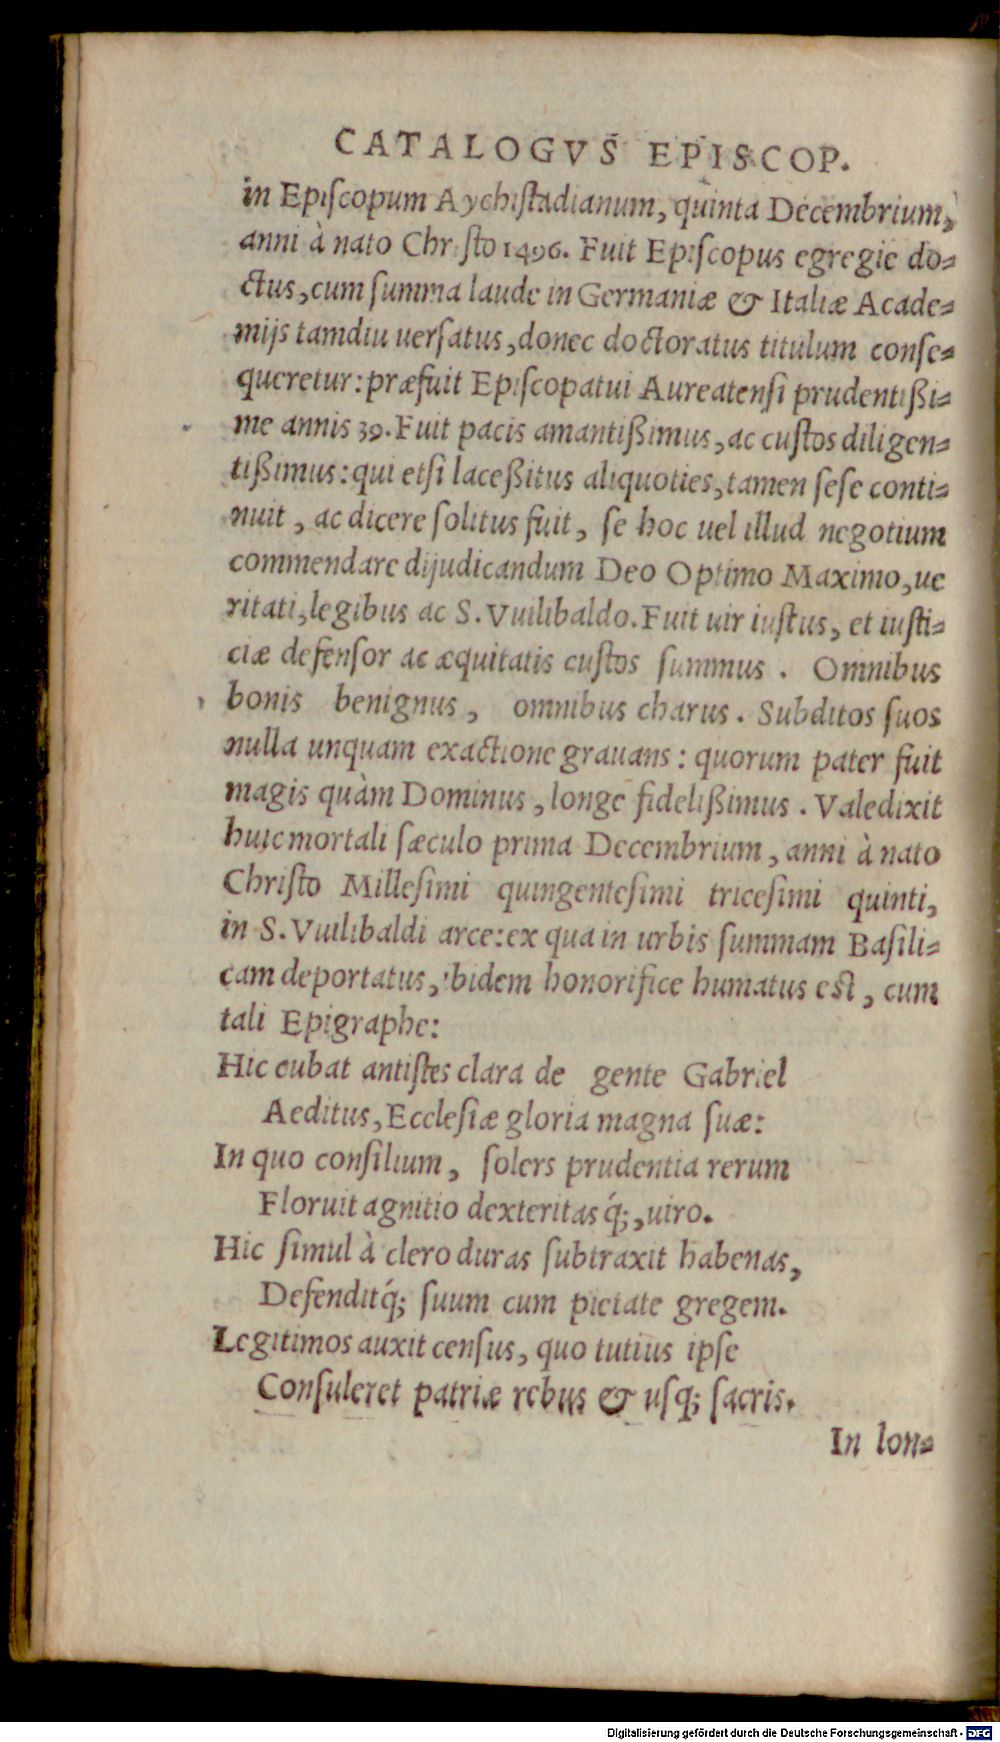 CATALOGVS EPISCOP.
in Episcopum Aychistadianum, quinta Decembrium,
anni à nato Christo 1496. Fuit Episcopus egregie do-
ctus, cum summa laude in Germaniæ & Italiæ Acade-
mijs tamdiu uersatus, donec doctoratus titulum conse-
queretur: præfuit Episcopatui Aureatensi prudentißi-
me annis 39. Fuit pacis amantißimus, ac custos diligen-
tißimus: qui etsi laceßitus aliquoties, tamen sese conti-
nuit, ac dicere solitus fuit, se hoc uel illud negotium
commendare dijudicandum Deo Optimo Maximo, ue
ritati, legibus ac S. Vuilibaldo. Fuit uir iustus, et iusti-
ciæ defensor ac æquitatis custos summus. Omnibus
bonis benignus, omnibus charus. Subditos suos
nulla unquam exactione grauans: quorum pater fuit
magis quàm Dominus, longe fidelißimus. Valedixit
huic mortali sæculo prima Decembrium, anni à nato
Christo Millesimi quingentesimi tricesimi quinti,
in S. Vuilibaldi arce: ex qua in urbis summam Basili-
cam deportatus, ibidem honorifice humatus est, cum
tali Epigraphe:
Hic cubat antistes clara de gente Gabriel
Aeditus, Ecclesiæ gloria magna suæ:
In quo consilium, solers prudentia rerum
Floruit agnitio dexteritas q́;, uiro.
Hic simul à clero duras subtraxit habenas,
Defenditq́; suum cum pietate gregem.
Legitimos auxit census, quo tutius ipse
Consuleret patriæ rebus & usq; sacris.
In lon-
Digitalisierung gefördert durch die Deutsche Forschungsgemeinschaft - DFG